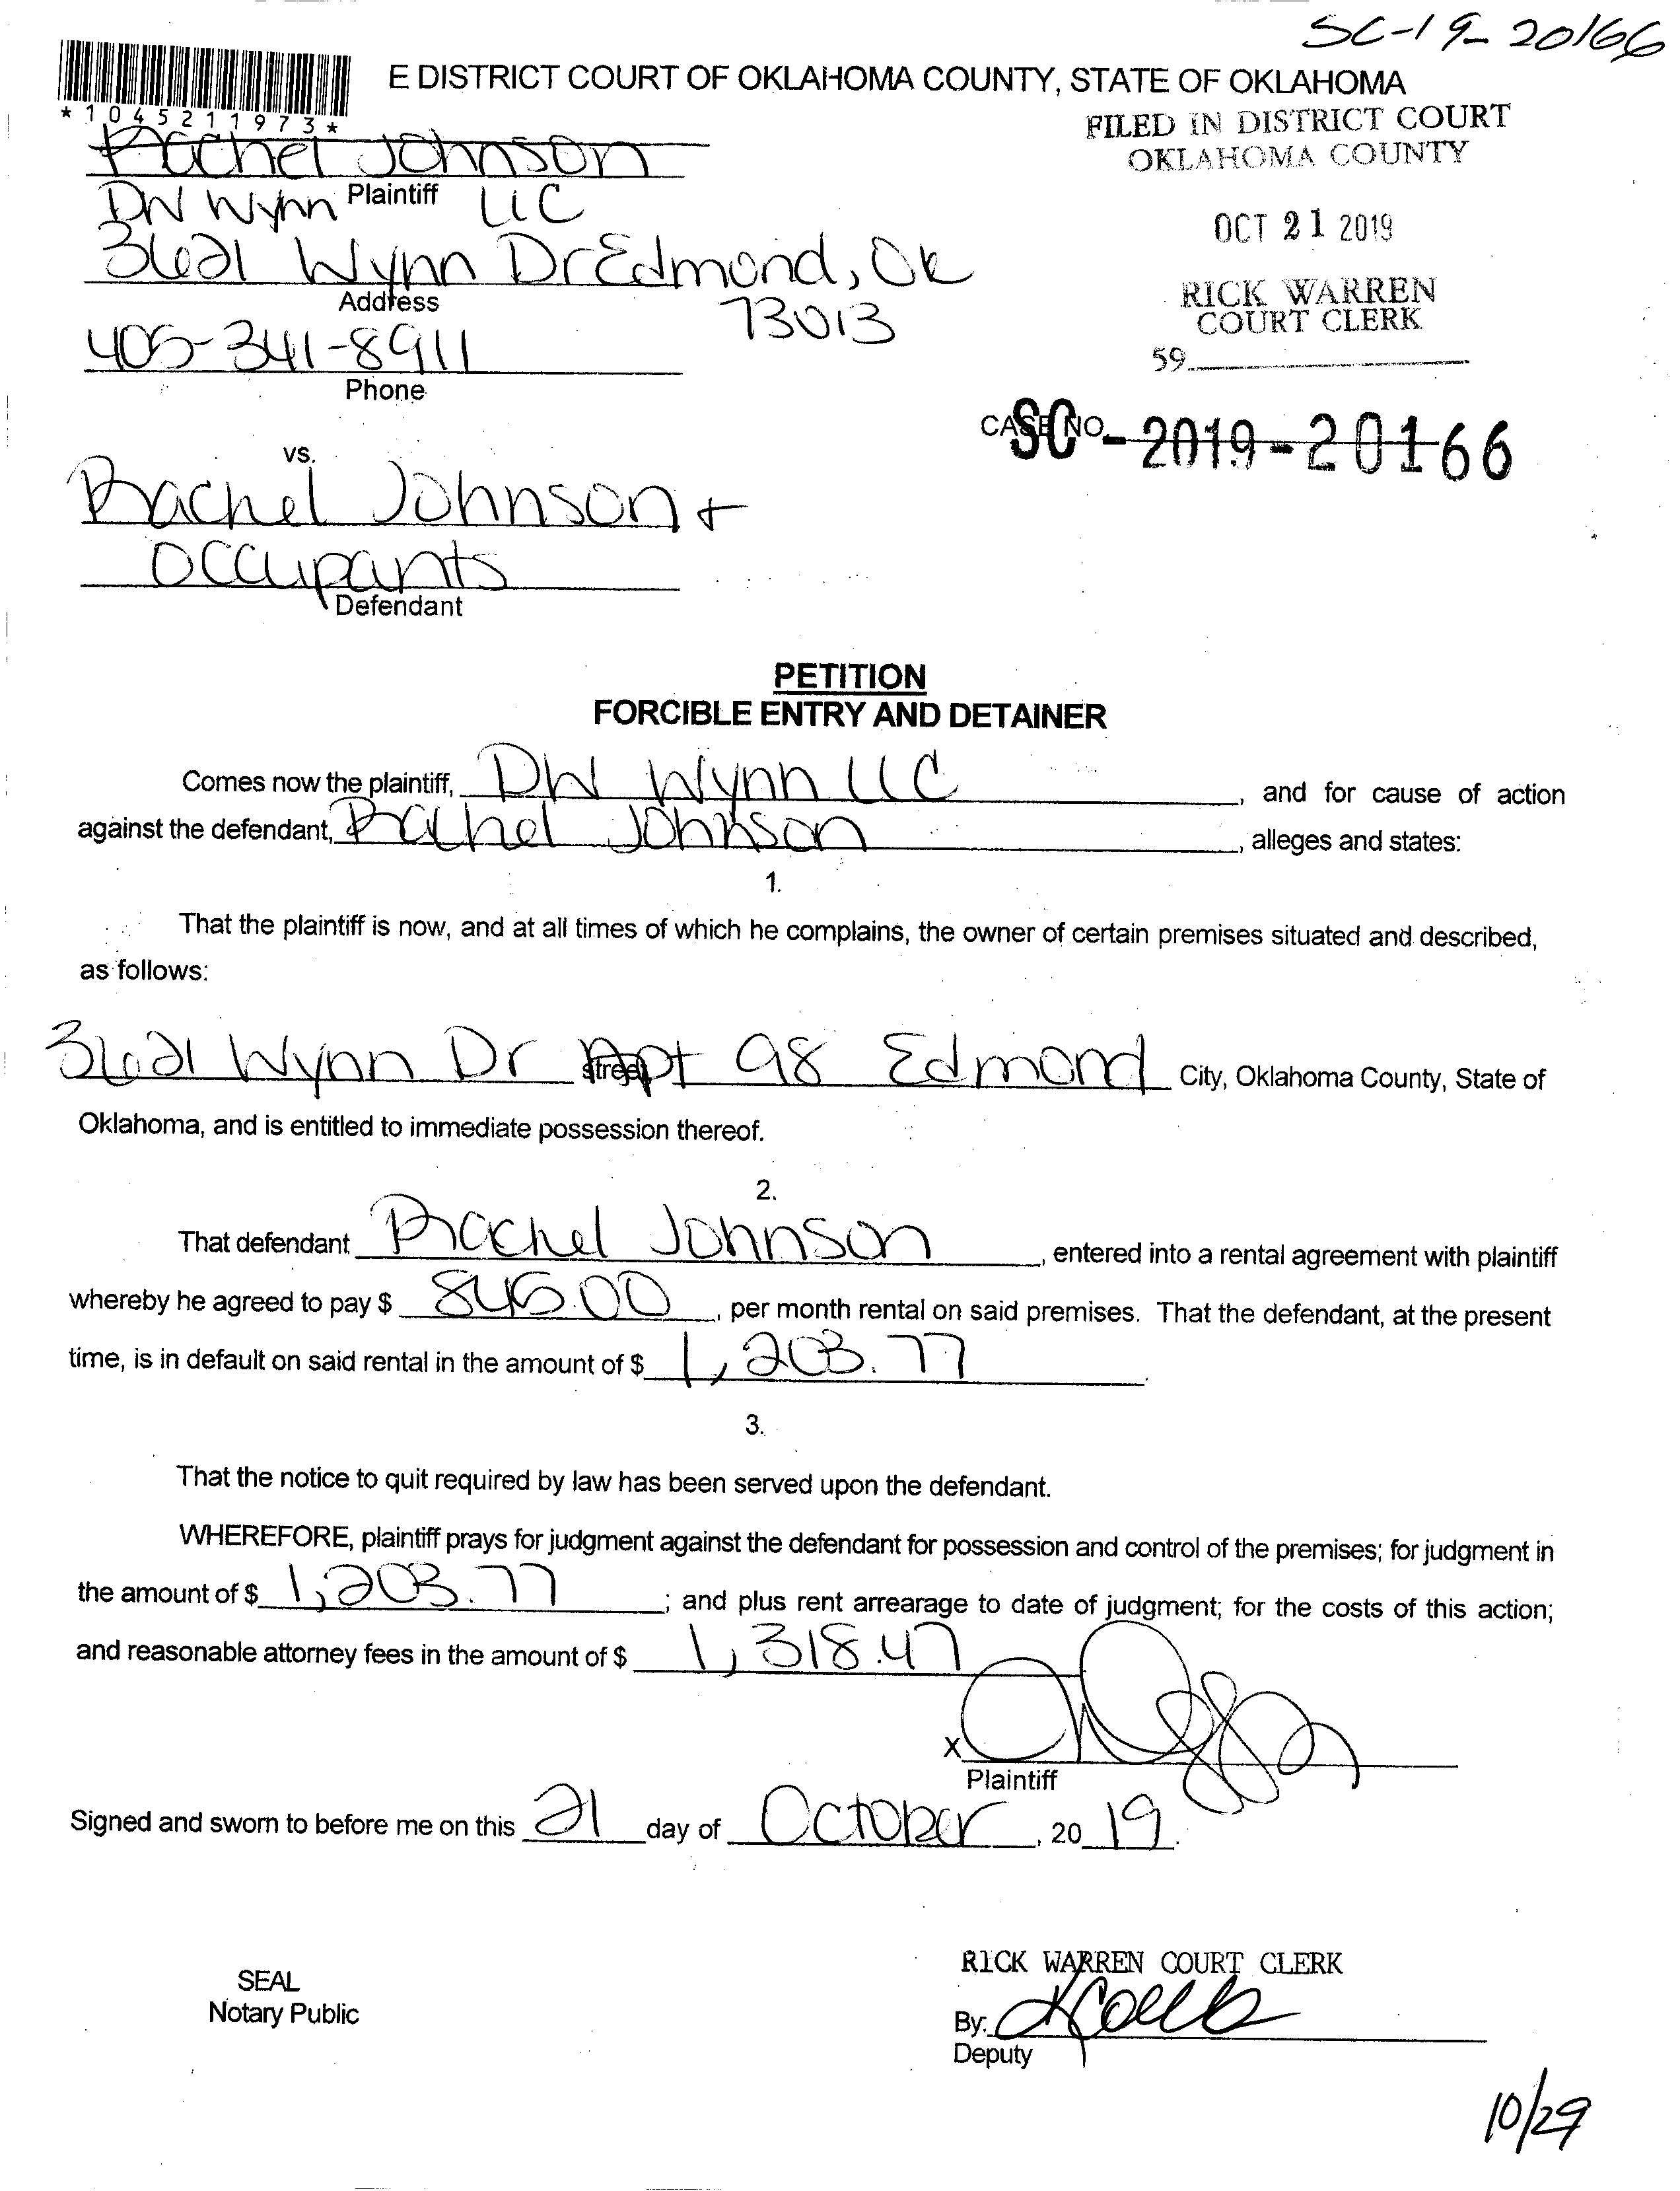 SC-19-20166
E DISTRICT COURT OF OKLAHOMA COUNTY, STATE OF OKLAHOMA
*1045211973*
FILED IN DISTRICT COURT
OKLAHOMA COUNTY
Rachel Johnson
Plaintiff
DW Wynn LLC
OCT 21 2019
3621 Wynn Dr Edmond, OK
73013
Address
RICK WARREN
COURT CLERK
405-341-8911
Phone
59
CASE NO. SC-2019-20166
vs.
Rachel Johnson +
Occupants
Defendant
PETITION
FORCIBLE ENTRY AND DETAINER
Comes now the plaintiff, DW Wynn LLC, and for cause of action
against the defendant, Rachel Johnson, alleges and states:
1.
That the plaintiff is now, and at all times of which he complains, the owner of certain premises situated and described,
as follows:
3621 Wynn Dr Apt 98 Edmond City, Oklahoma County, State of
street
Oklahoma, and is entitled to immediate possession thereof.
2.
That defendant Rachel Johnson, entered into a rental agreement with plaintiff
whereby he agreed to pay $ 845.00, per month rental on said premises. That the defendant, at the present
time, is in default on said rental in the amount of $ 1,203.77.
3.
That the notice to quit required by law has been served upon the defendant.
WHEREFORE, plaintiff prays for judgment against the defendant for possession and control of the premises; for judgment in
the amount of $ 1,203.77; and plus rent arrearage to date of judgment; for the costs of this action;
and reasonable attorney fees in the amount of $ 1,318.47
X
Plaintiff
Signed and sworn to before me on this 21 day of October, 2019.
RICK WARREN COURT CLERK
SEAL
Notary Public
By:
Deputy
10/29